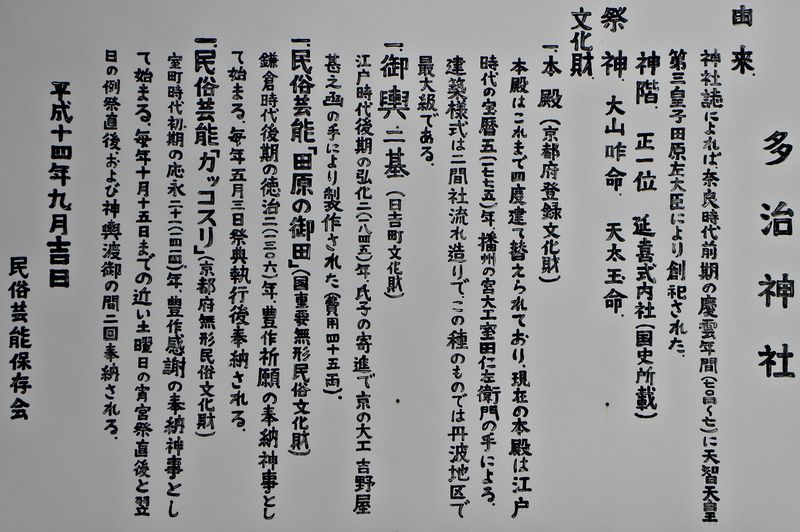 多治神社
由来
神社誌によれば奈良時代前期の慶雲年間(七〇四〜七)に天智天皇
第三皇子田原左大臣により創祀された、
神階、正一位 延喜式内社(国史所載)
祭神、大山咋命、天太玉命、
文化財
一、本殿(京都府登録文化財)
本殿はこれまで四度建て替えられており、現在の本殿は江戸
時代の宝暦五(一七七五)年、播州の宮大工室田仁左衛門の手による、
建築様式は二間社流れ造りで、この種のものでは丹波地区で
最大級である、
一、御輿二基(日吉町文化財)
江戸時代後期の弘化二(一八四五)年、氏子の寄進で京の大工吉野屋
甚之函の手により製作された、(費用四十五両)、
一、民俗芸能「田原の御田」(国重要無形民俗文化財)
鎌倉時代後期の徳治二(一三〇六)年、豊作祈願の奉納神事とし
て始まる、毎年五月三日祭典執行後奉納される、
一、民俗芸能「カッコスリ」(京都府無形民俗文化財)
室町時代初期の応永二十一(一四一四)年、豊作感謝の奉納神事とし
て始まる、毎年十月十五日までの近い土曜日の宵宮祭直後と翌
日の例祭直後、および神輿渡御の間二回奉納される、
平成十四年九月吉日
民俗芸能保存会